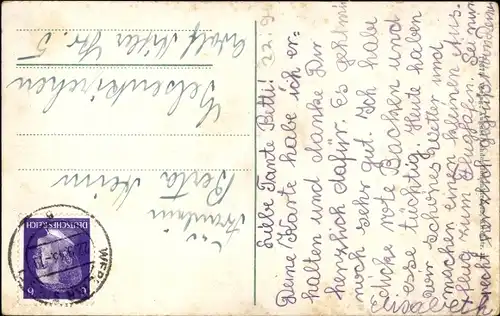 Liebe Tante Betti! 22.9.
Deine Karte habe ich er-
halten und danke Dir
herzlich dafür. Es geht mir
noch sehr gut. Ich habe
dicke rote Backen und
esse tüchtig. Heute haben
wir schönes Wetter und
machen einen kleinen Aus-
flug zum Flughafen. Sei nun
recht herzlich gegrüßt von
Elisabeth
Fräulein
Berta
Gelsenkirchen
Adolf Hitler Str. 5
DEUTSCHES REICH
6